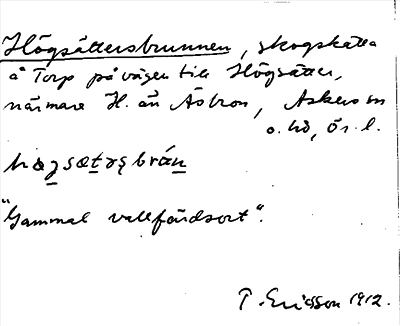 Högsättersbrunnen, skogskälla
å Torp på vägen till Högsätter,
närmare H. än Åbron, Askers sn
o. hd, Ör. l.
"Gammal vallfärdsort".
T. Ericsson 1912.